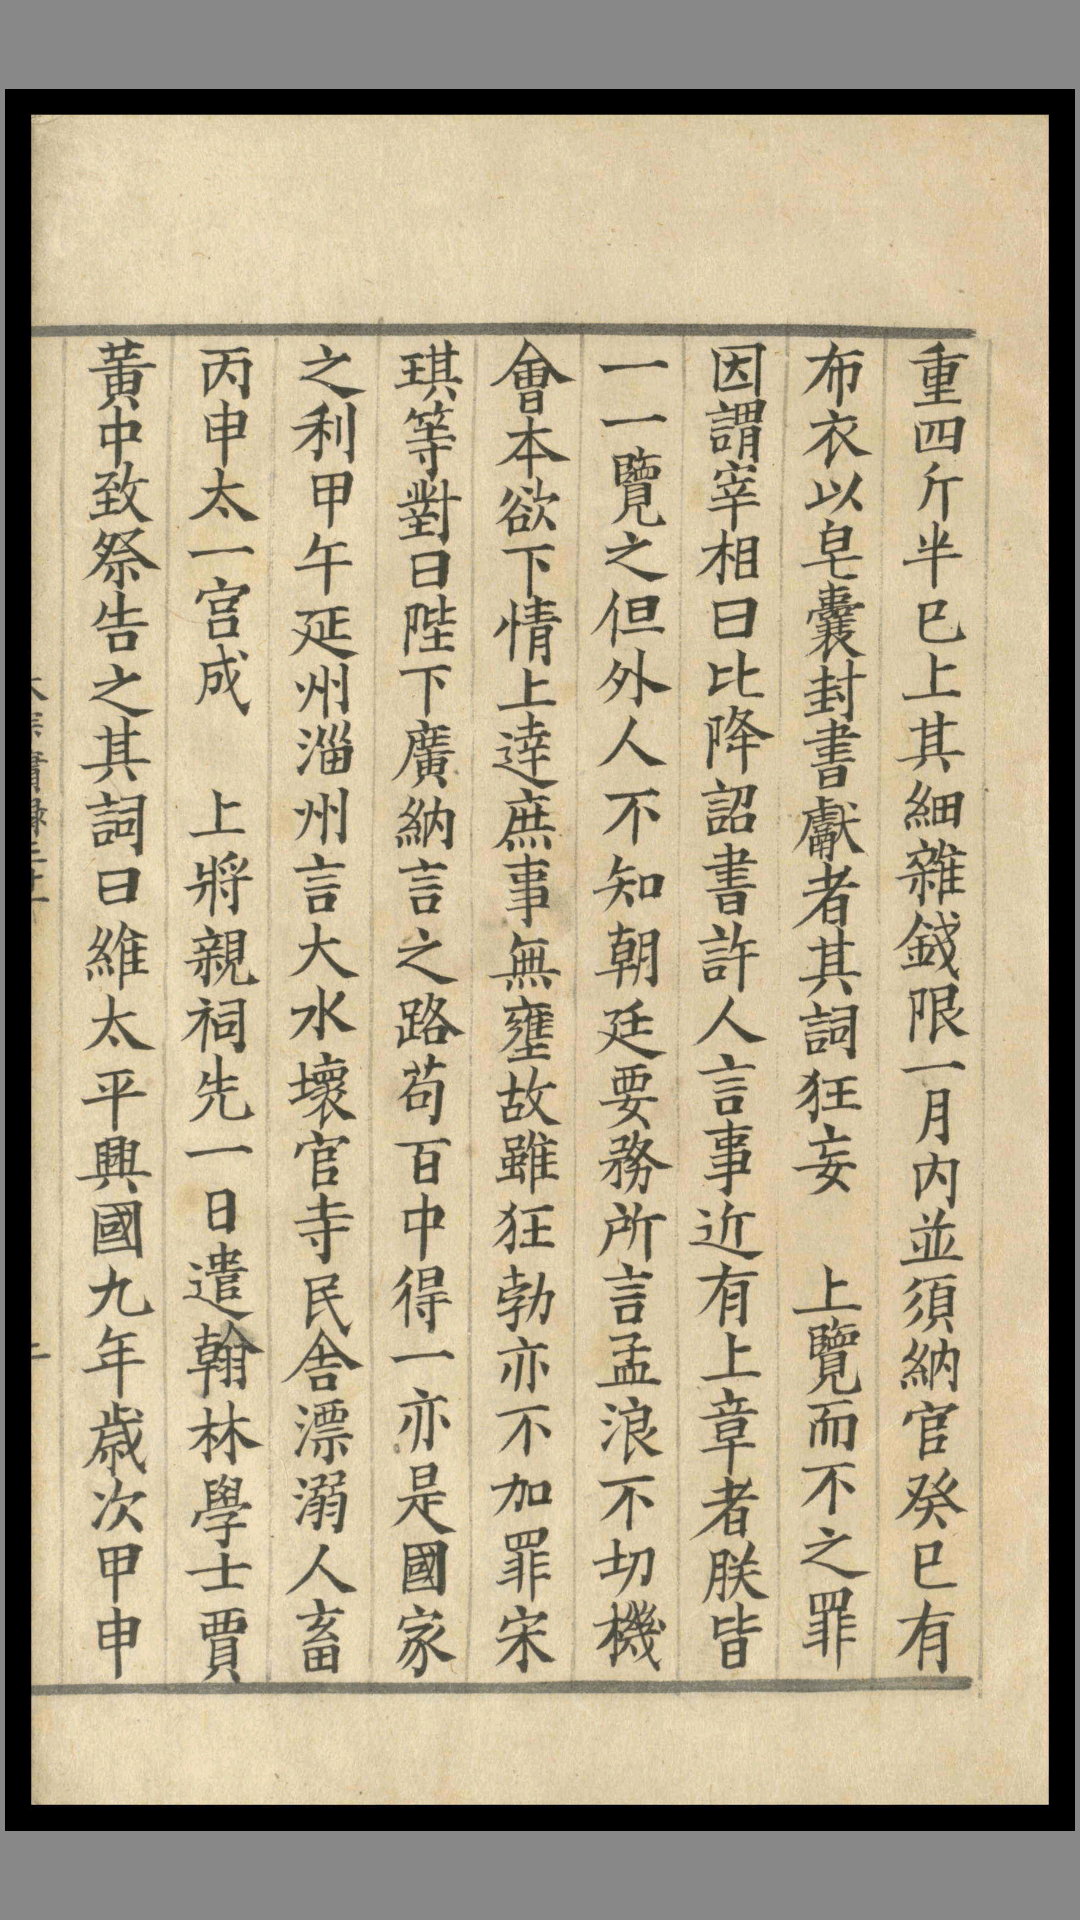 重四斤半已上其細雜錢限一月内並須納官癸巳有
布衣以皂囊封書獻者其詞狂妄　上覽而不之罪
因謂宰相曰比降詔書許人言事近有上章者朕皆
一一覽之但外人不知朝廷要務所言孟浪不切機
會本欲下情上達庶事無壅故雖狂勃亦不加罪宋
琪等對曰陛下廣納言之路苟百中得一亦是國家
之利甲午延州淄州言大水壞官寺民舎漂溺人畜
丙申太一宫成　上將親祠先一日遣翰林學士賈
黃中致祭告之其詞曰維太平興國九年歳次甲申